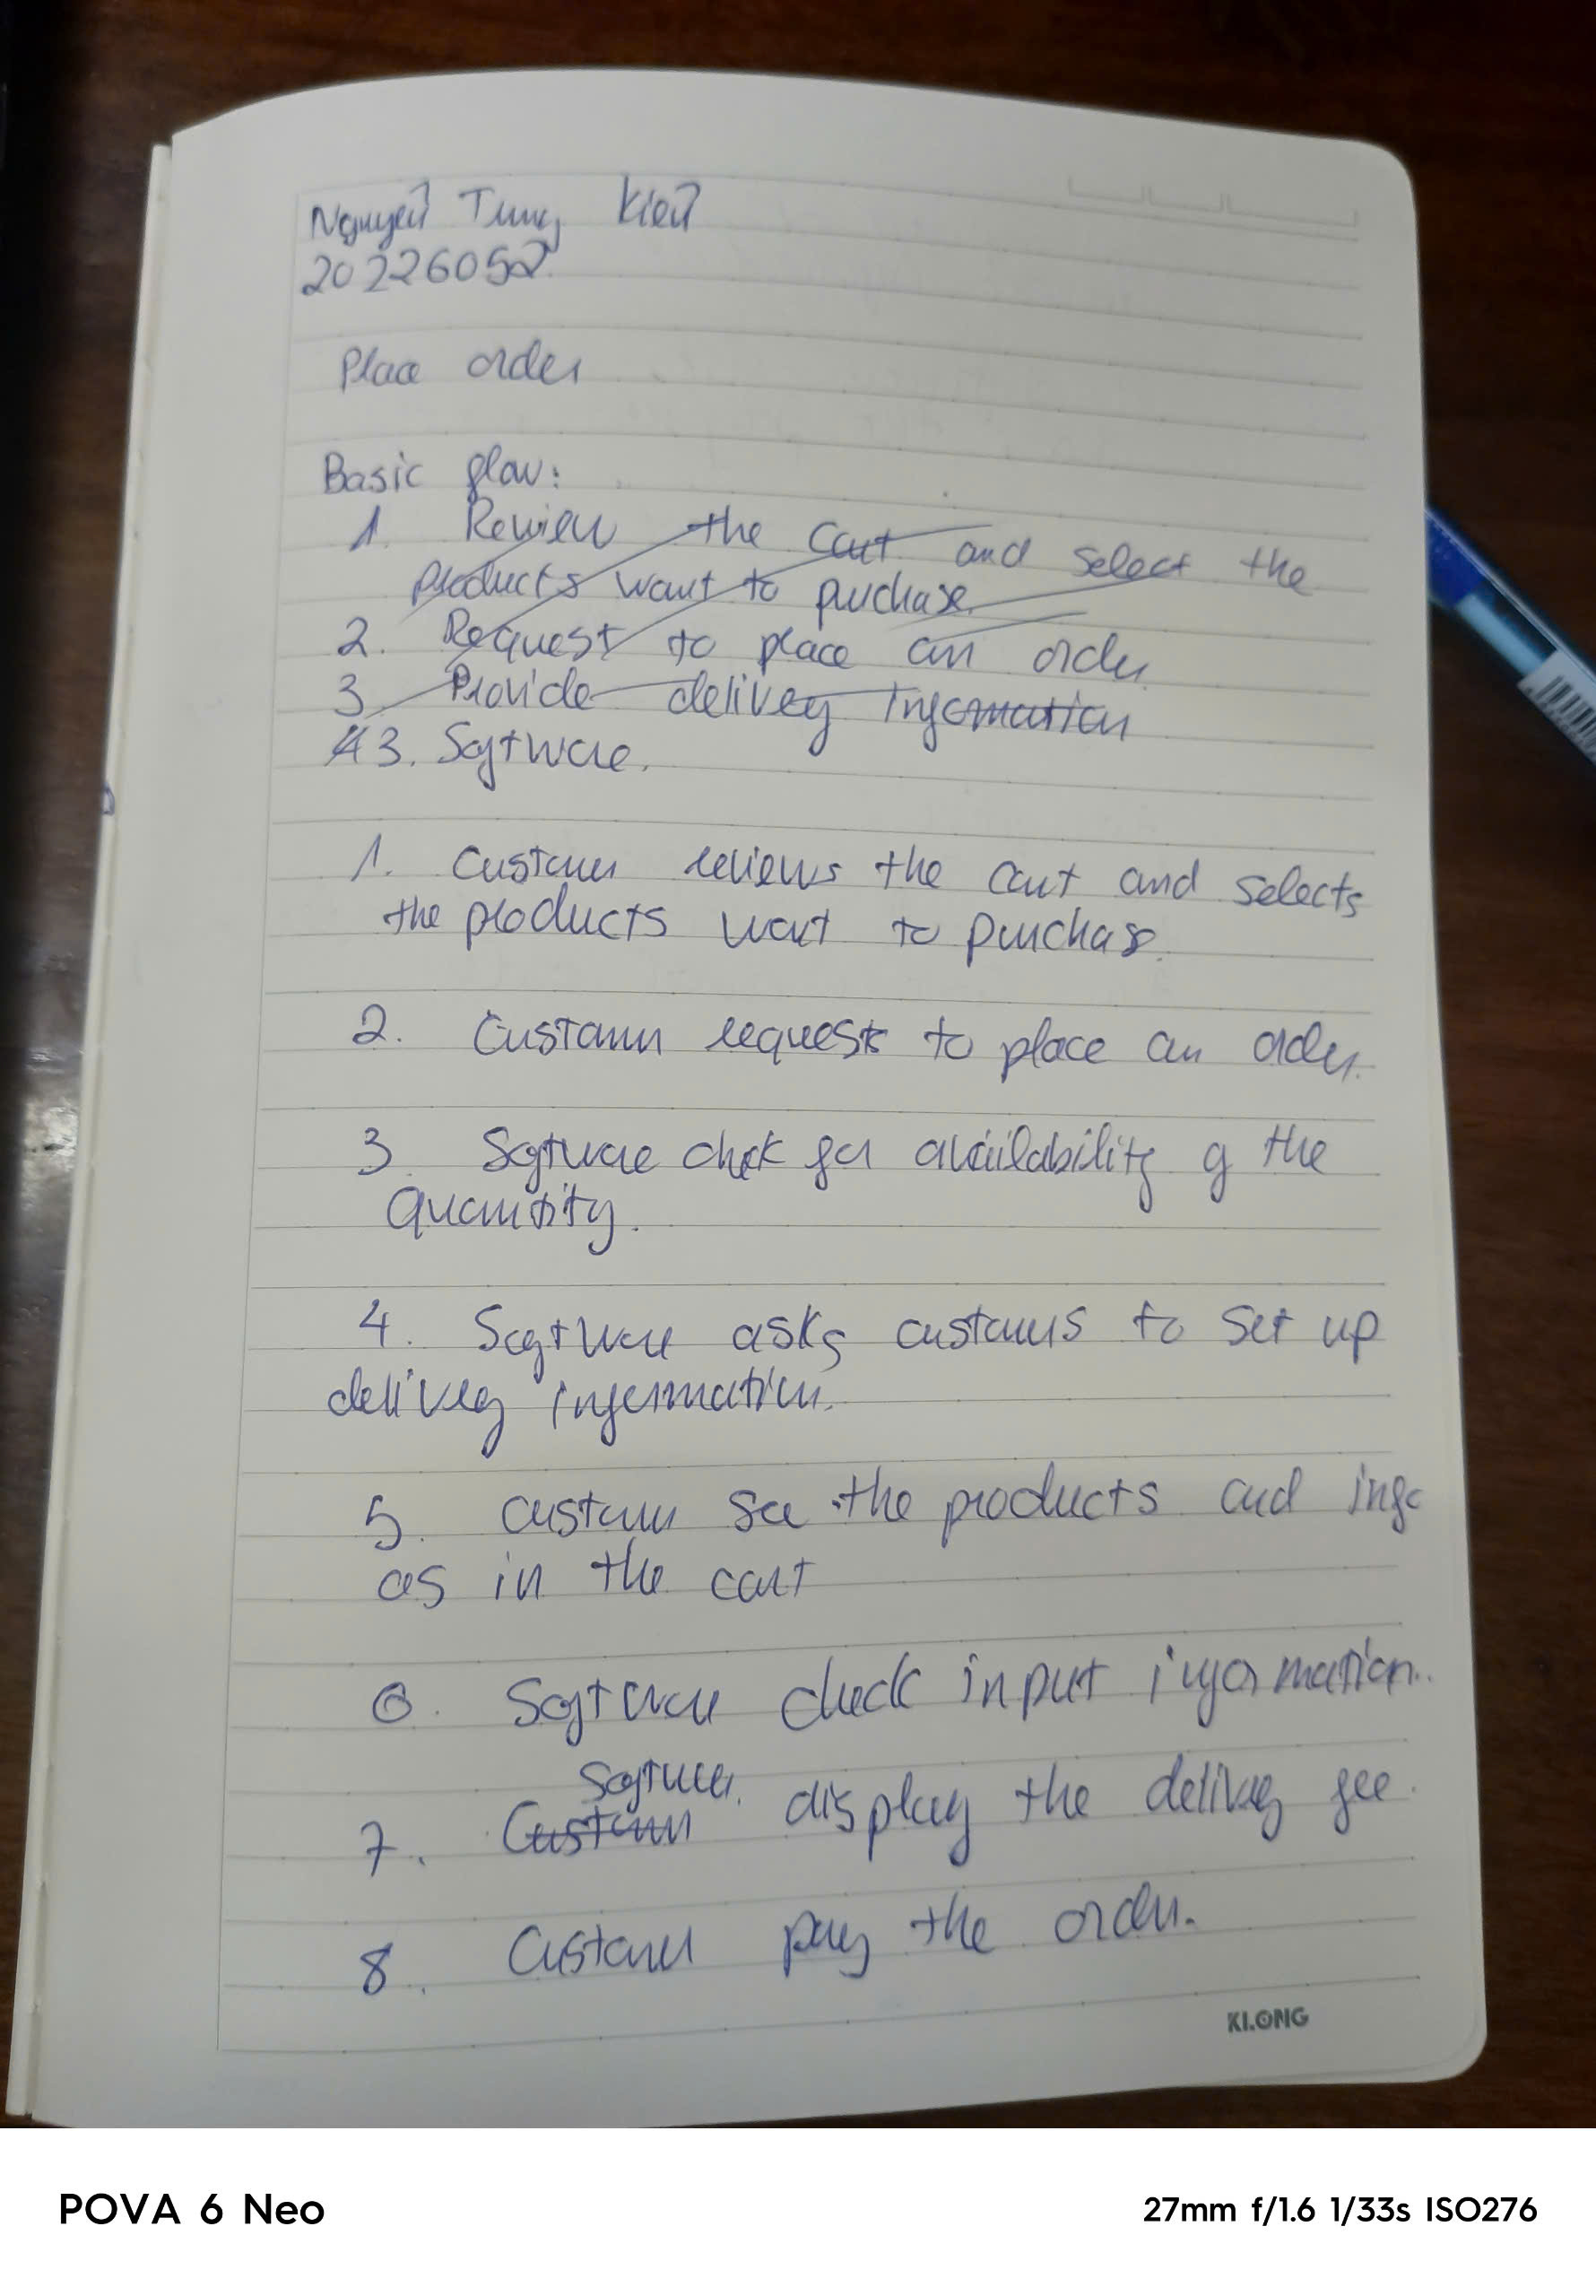 Nguyễn Tung Kiên
20226052
Place order
Basic flow:
1. Review the cart and select the
products want to purchase.
2. Request to place an order
3. Provide delivery information
43. Software.
1. Customer reviews the cart and selects
the products want to purchase.
2. Customer requests to place an order.
3 Software check for availability of the
quantity.
4. Software asks customers to set up
delivery information.
5. Customer see the products and info
as in the cart
6. Software check input information.
Software
7. Customer display the delivery fee.
8. Customer pay the order.
KLONG
POVA 6 Neo
27mm f/1.6 1/33s ISO276